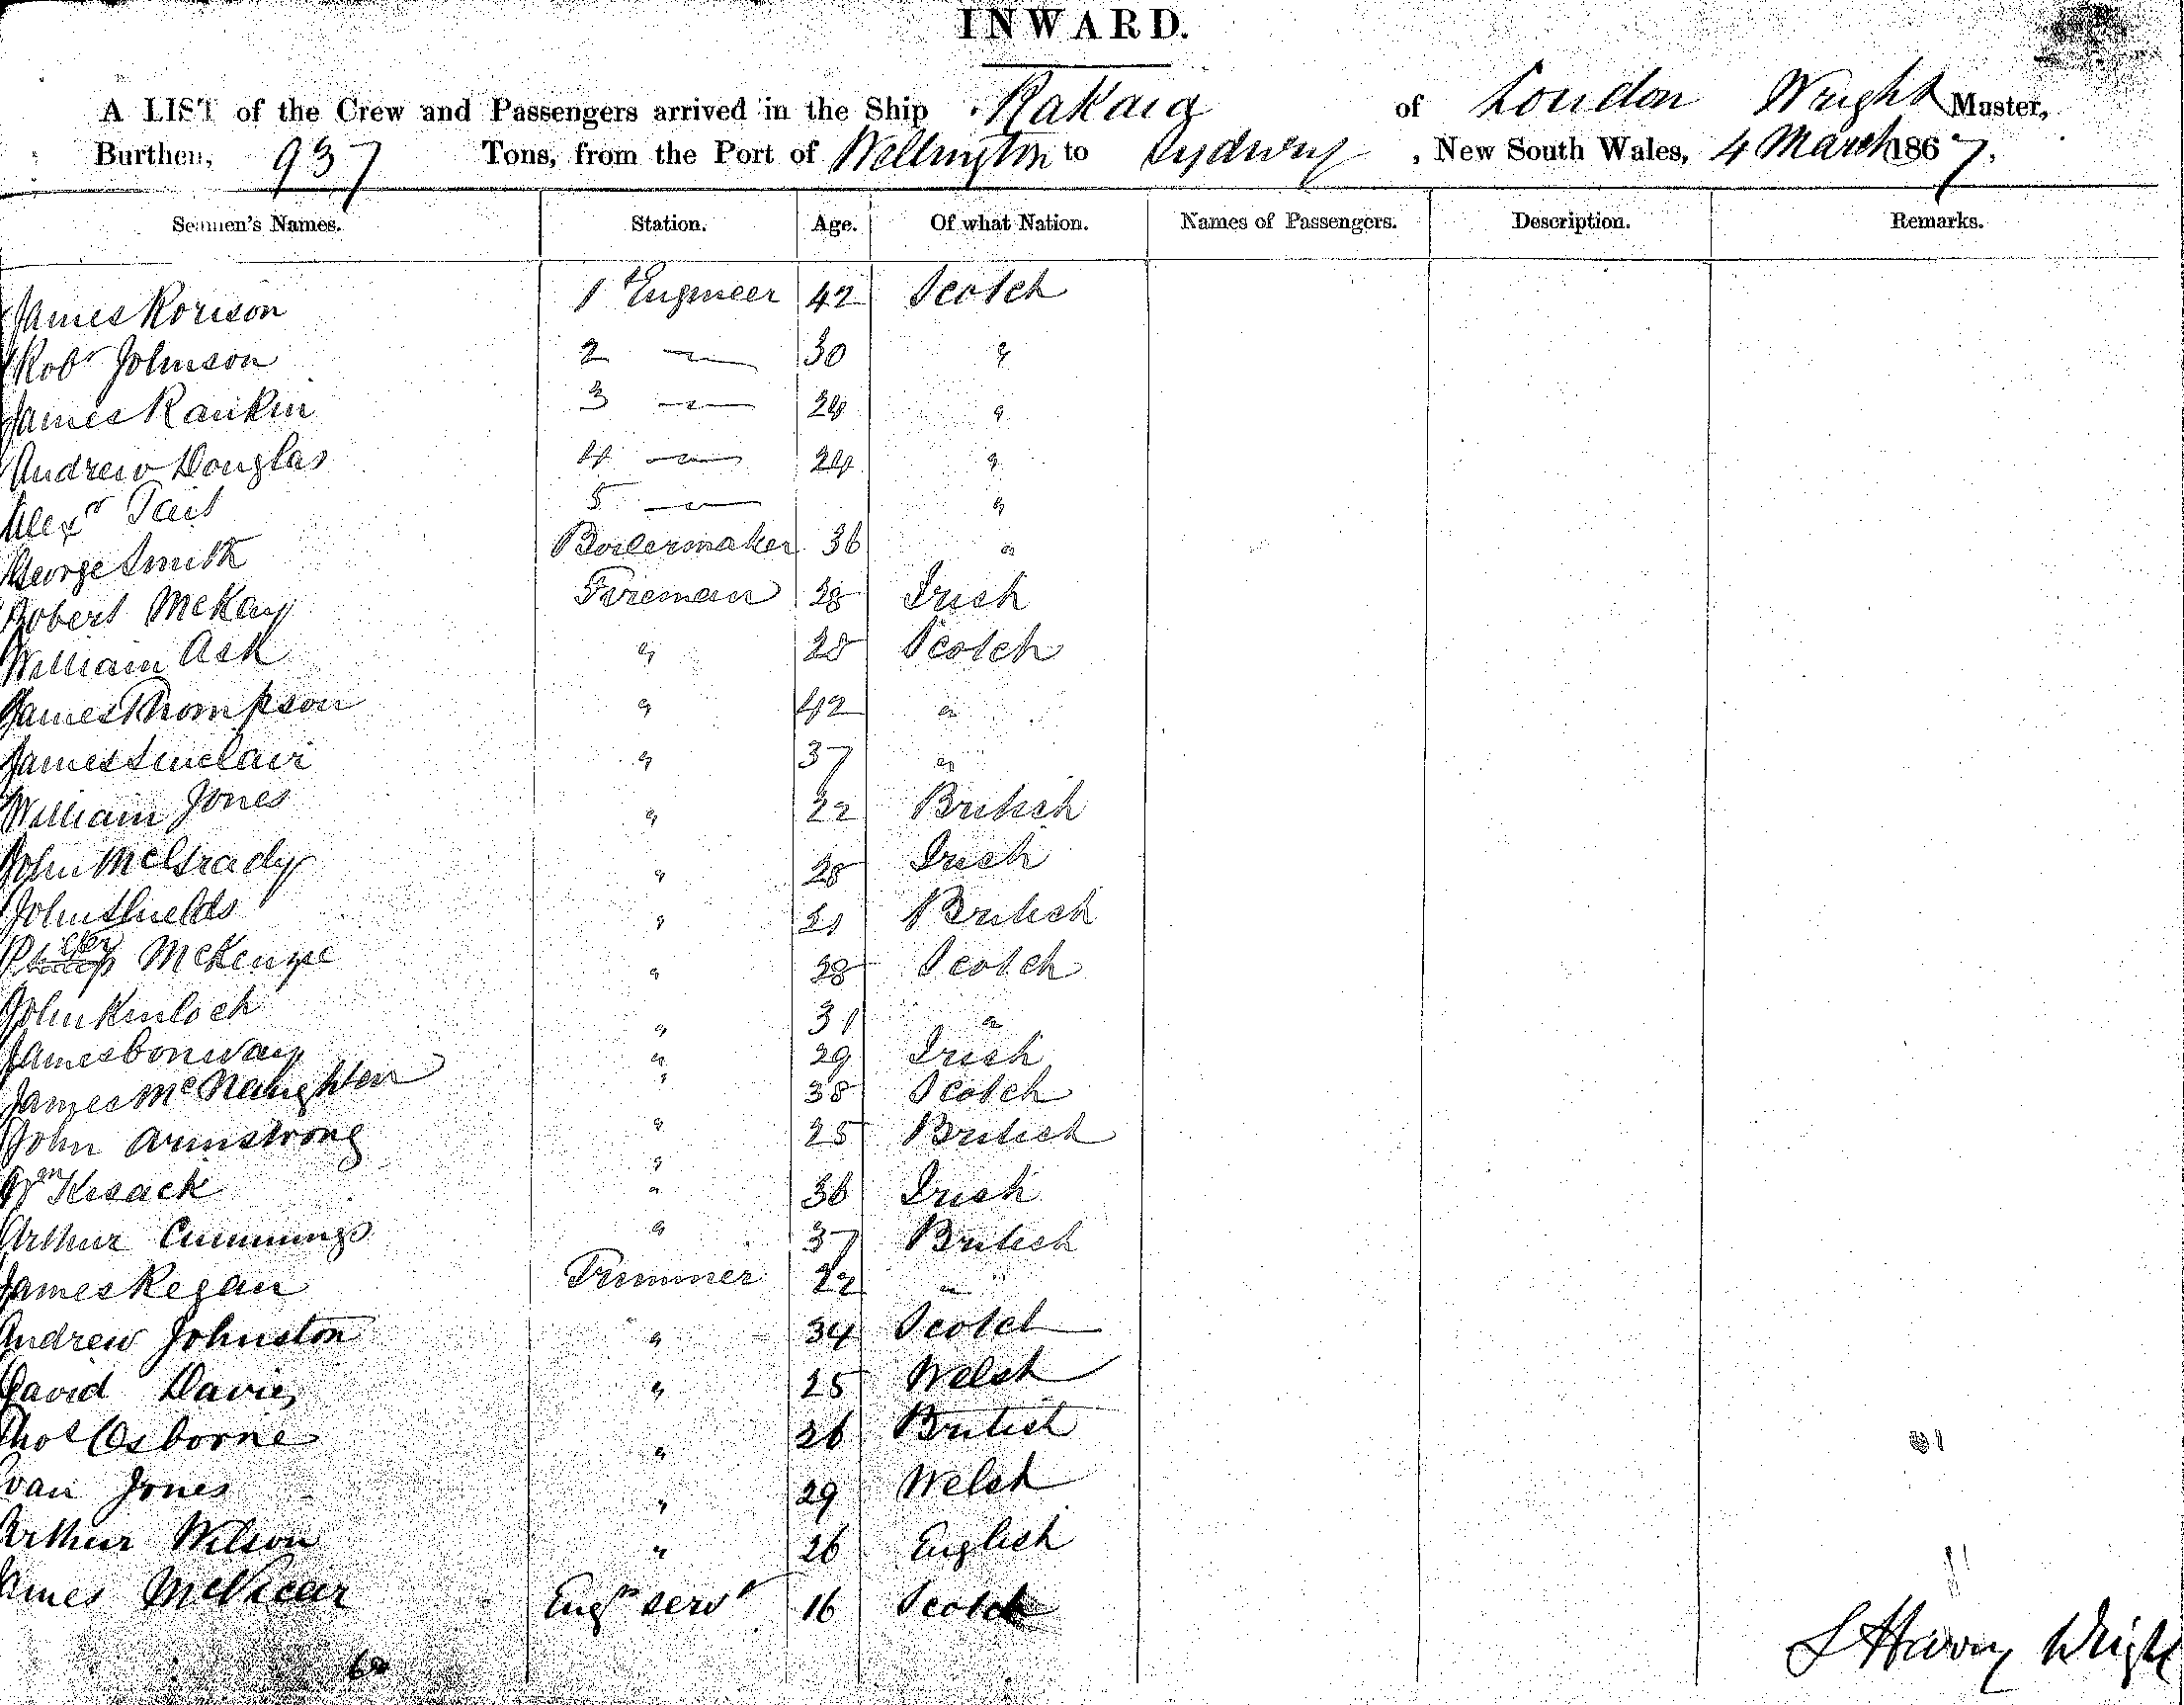 INWARD.
A LIST of the Crew and Passengers arrived in the Ship Rakaia of London Wright Master,
Burthen, 937 Tons, from the Port of Wellington to Sydney, New South Wales, 4 March 1867.
Seamen's Names. Station. Age. Of what Nation. Names of Passengers. Description. Remarks.
James Rorison 1 Engineer 42 Scotch
Robt Johnson 2 — " — 30 "
James Rankin 3 — " — 24 "
Andrew Douglas 4 — " — 24 "
Alexr Tait 5 — " — "
George Smith Boilermaker 36 "
Robert McKay Fireman 28 Irish
William Ask " 28 Scotch
James Thompson " 42 "
James Sinclair " 37 "
William Jones " 22 British
John McGrady " 28 Irish
John Shields " 21 British
McKenzie " 28 Scotch
John Kinloch " 31 "
James Conway " 29 Irish
James McNaughten " 38 Scotch
John Armstrong " 25 British
Wm Kisack " 36 Irish
Arthur Cummings " 37 British
James Regan Trimmer 22 "
Andrew Johnston " 34 Scotch
David Davies " 25 Welsh
Thos Osborne " 26 British
Evan Jones " 29 Welsh
Arthur Wilson " 26 English
James McVicar Engrs servt 16 Scotch
Wright